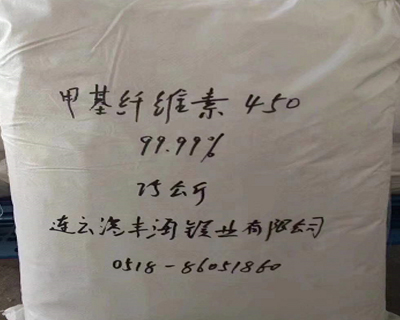 甲基纤维素 450
99.99%
25公斤
连云港丰海镁业有限公司
0518-86051860